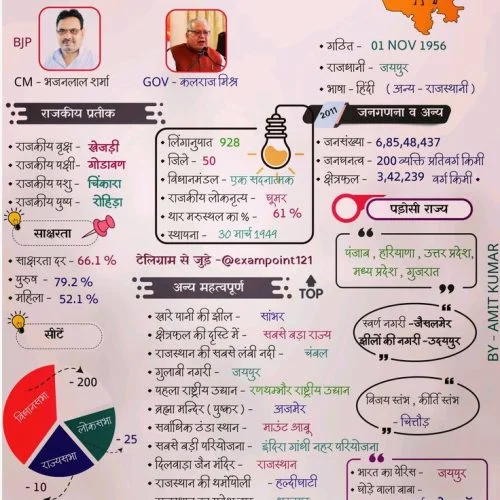 BJP
CM - भजनलाल शर्मा
GOV - कलराज मिश्र
• गठित - 01 NOV 1956
• राजधानी - जयपुर
• भाषा - हिंदी (अन्य - राजस्थानी)
राजकीय प्रतीक
• राजकीय वृक्ष - खेजड़ी
• राजकीय पक्षी - गोडावण
• राजकीय पशु - चिंकारा
• राजकीय पुष्प - रोहिड़ा
• लिंगानुपात 928
• जिले - 50
• विधानमंडल - एक सदनात्मक
• राजकीय लोकनृत्य - घूमर
• थार मरुस्थल का % - 61 %
• स्थापना - 30 मार्च 1949
2011
जनगणना व अन्य
• जनसंख्या - 6,85,48,437
• जनघनत्व - 200 व्यक्ति प्रतिवर्ग किमी
• क्षेत्रफल - 3,42,239 वर्ग किमी •
पड़ोसी राज्य
पंजाब, हरियाणा, उत्तर प्रदेश,
मध्य प्रदेश, गुजरात
साक्षरता
• साक्षरता दर - 66.1 %
• पुरुष - 79.2 %
• महिला - 52.1 %
टेलिग्राम से जुड़े - @exampoint121
अन्य महत्वपूर्ण
TOP
• खारे पानी की झील - सांभर
• क्षेत्रफल की दृस्टि में - सबसे बड़ा राज्य
• राजस्थान की सबसे लंबी नदी - चंबल
• गुलाबी नगरी - जयपुर
• पहला राष्ट्रीय उद्यान - रणथम्भौर राष्ट्रीय उद्यान
• ब्रह्मा मन्दिर (पुष्कर) - अजमेर
• सर्वाधिक ठंडा स्थान - माउंट आबू
• सबसे बड़ी परियोजना - इंदिरा गांधी नहर परियोजना
• दिलवाड़ा जैन मंदिर - राजस्थान
• राजस्थान की थर्मोपोली - हल्दीघाटी
स्वर्ण नगरी - जैसलमेर
झीलों की नगरी - उदयपुर
विजय स्तंभ, कीर्ति स्तंभ
- चित्तौड़
• भारत का पेरिस - जयपुर
• घोड़े वाला बाबा -
सीटें
विधानसभा
- 200
लोकसभा
- 25
राज्यसभा
- 10
BY - AMIT KUMAR